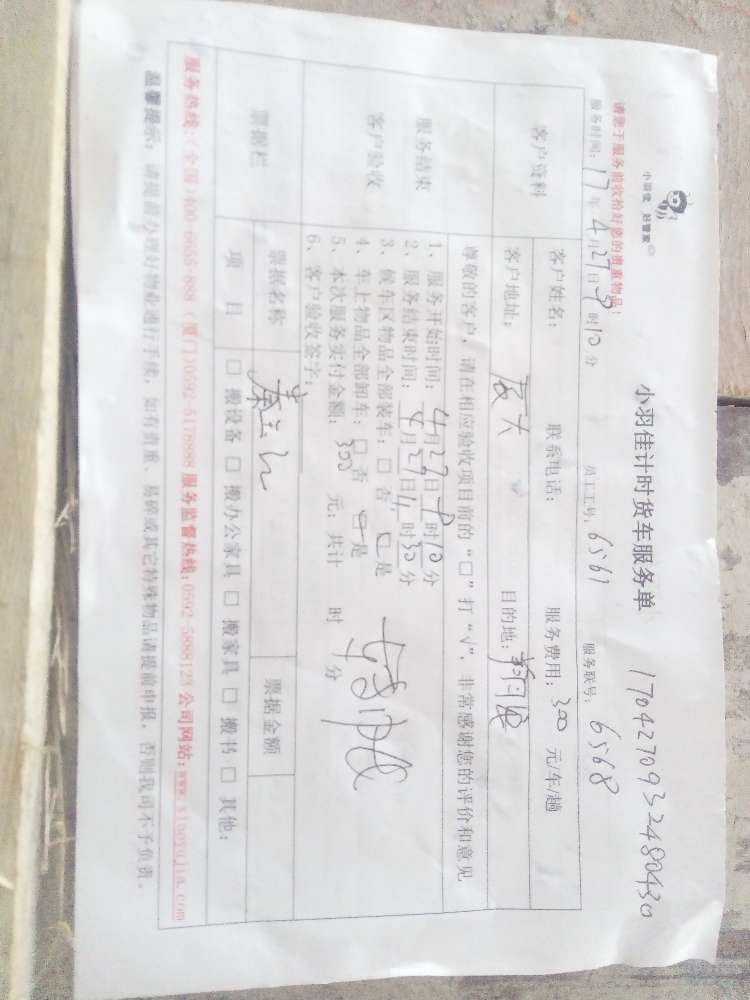 小羽佳 好管家
小羽佳计时货车服务单
1704270932480430
请您于服务前收拾好您的贵重物品!
服务时间: 17 年 4 月 27 日 9 时 10 分 员工工号: 6561 服务联号: 6568
客户资料
客户姓名: 联系电话: 服务费用: 300 元/车/趟
客户地址: 厦大 目的地: 翔安
服务结束
客户验收
尊敬的客户, 请在相应验收项目前的 “□” 打 “√”, 非常感谢您的评价和意见
1、服务开始时间: 4月27日 9 时 10 分
2、服务结束时间: 4月27日 11 时 30 分
3、候车区物品全部装车: □ 否 □ 是
4、车上物品全部卸车: □ 否 □ 是
5、本次服务实付金额: 300 元; 共计 时 分
6、客户验收签字:
票据栏
票据名称 票据金额
项 目 □ 搬设备 □ 搬办公家具 □ 搬家具 □ 搬书 □ 其他:
服务热线:(全国)400-6655-688 (厦门)0592-5178988 服务监督热线:0592-5888123 公司网站:www.xiaoyujia.com
温馨提示: 请提前办理好物业通行手续, 如有贵重、易碎或其它特殊物品请提前申报, 否则我司不予负责。